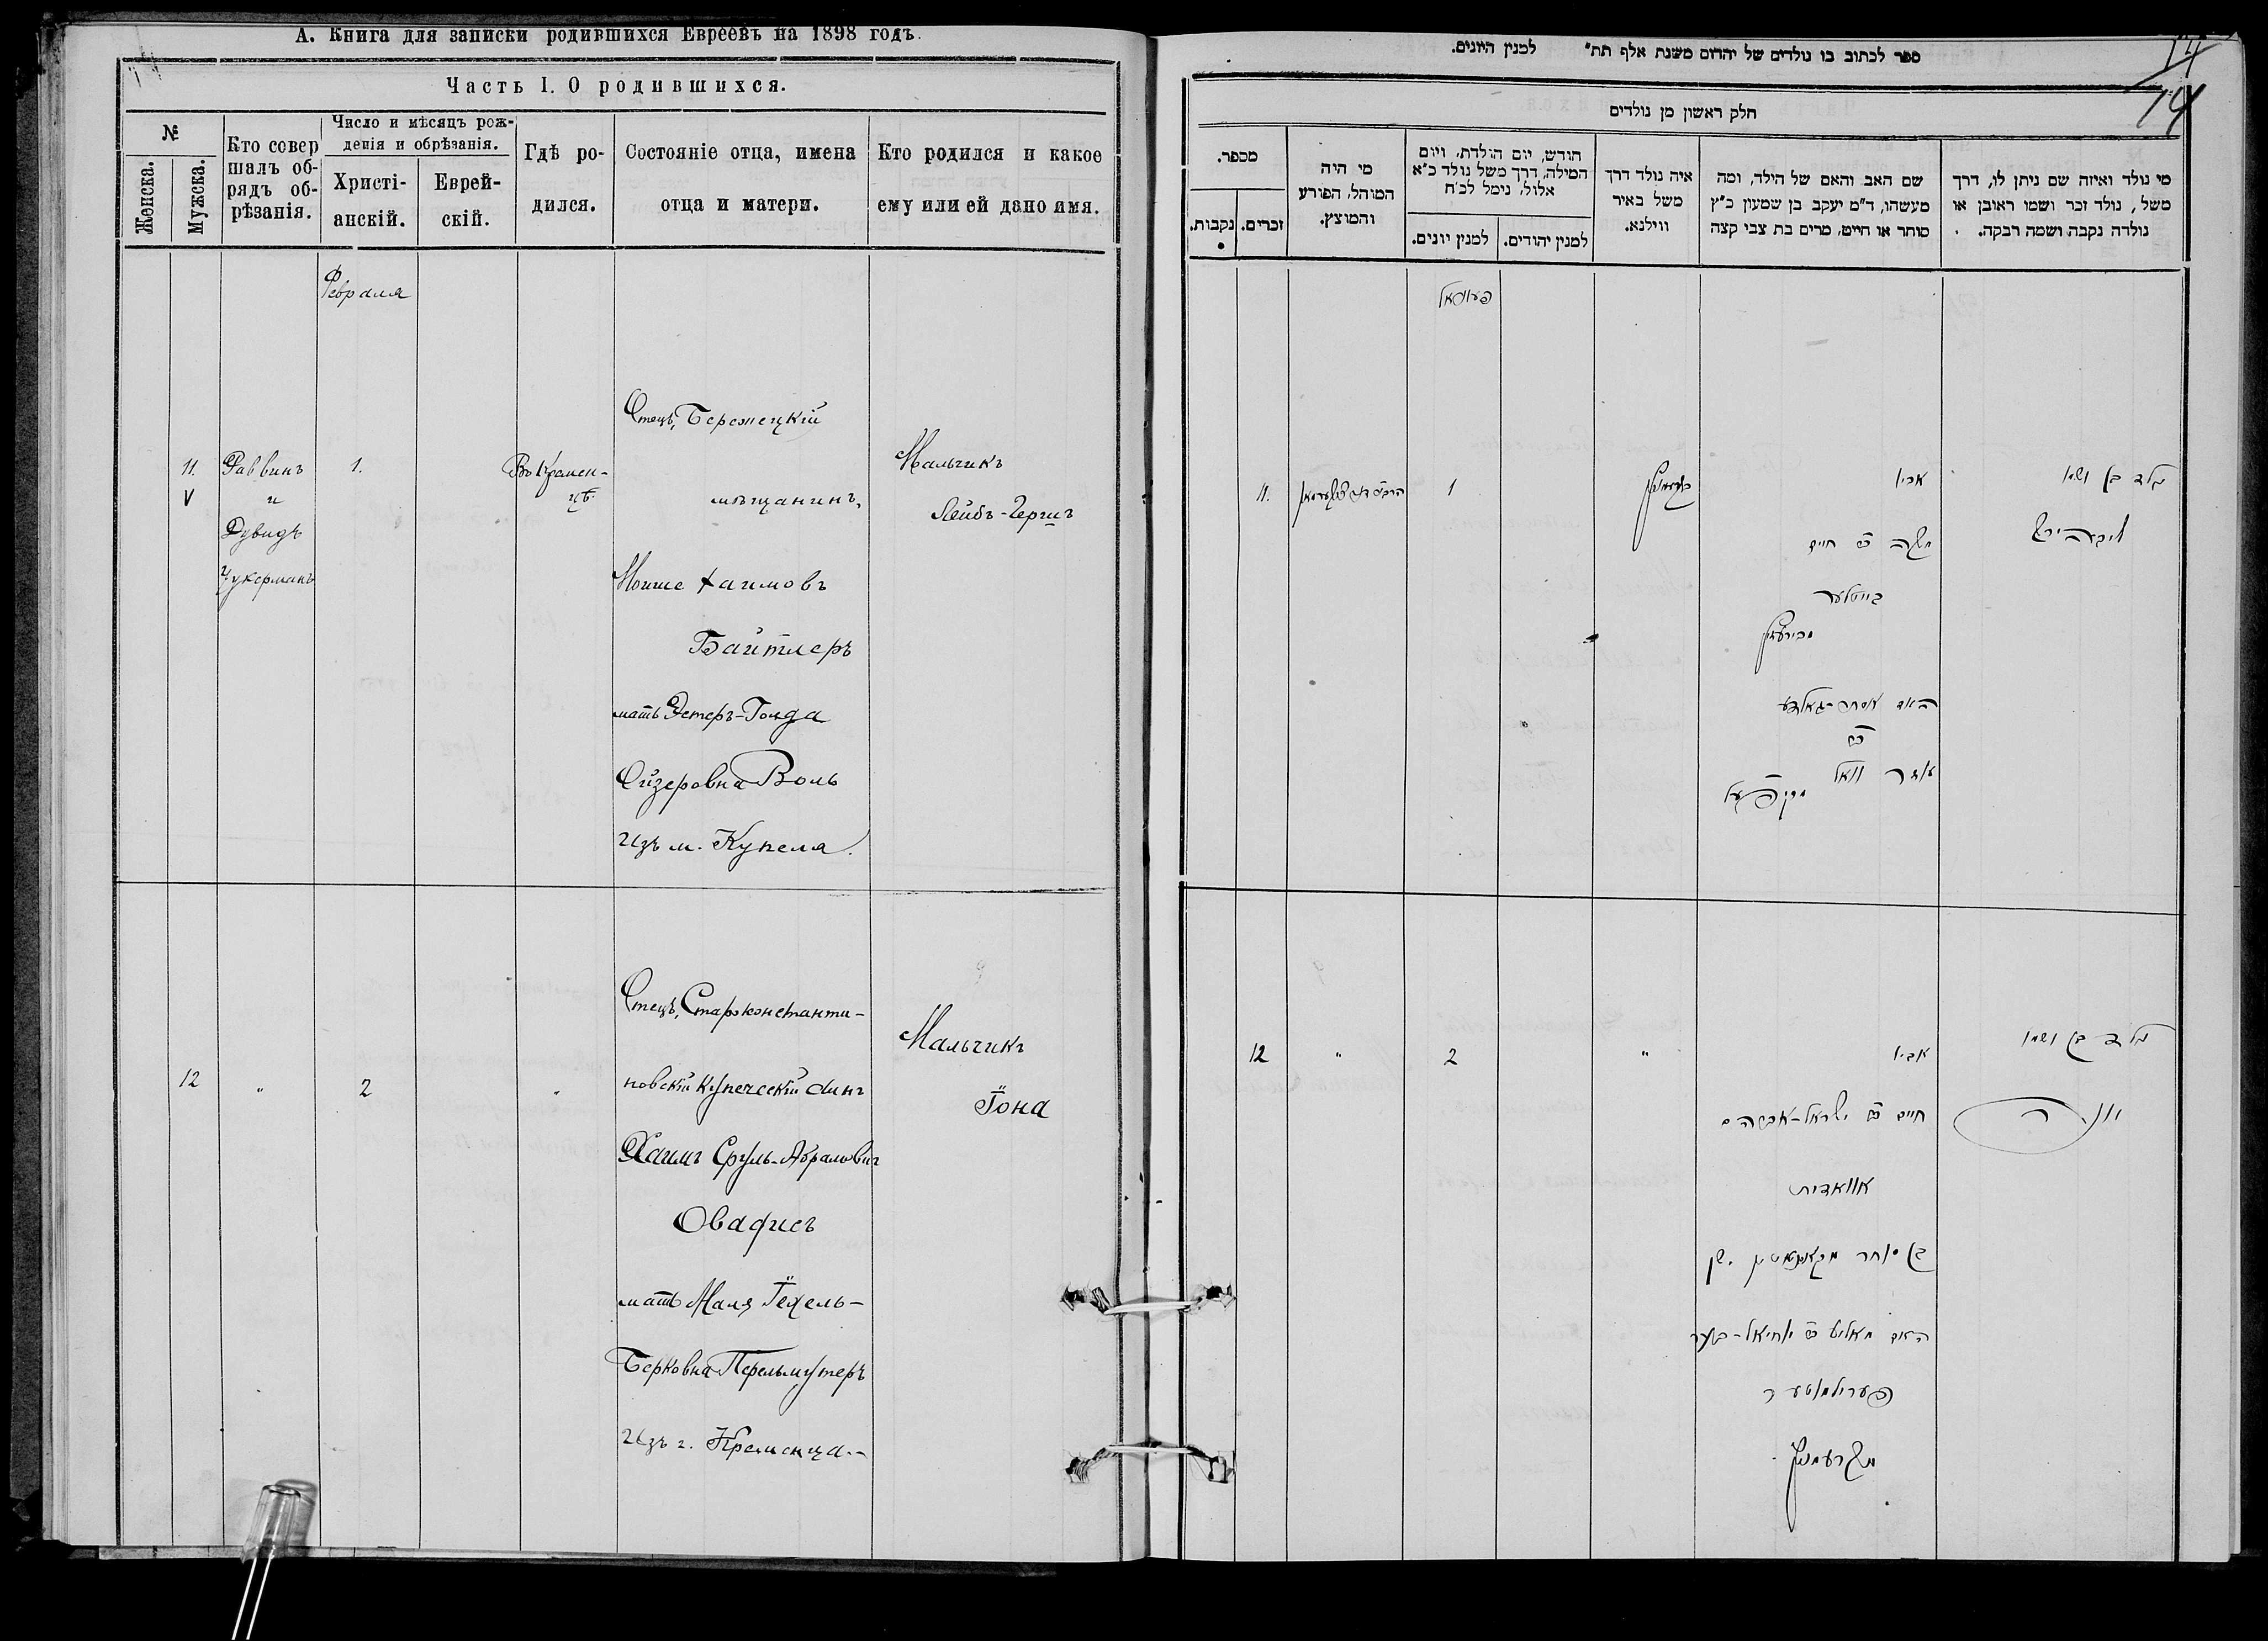 А. Книга для записки родившихся Евреевъ на 1898 годъ.
Часть I. О родившихся.
№
Женска.
Мужска.
Кто совер
шалъ об-
рядъ об-
рѣзанія.
Число и мѣсяцъ рож-
денія и обрѣзанія.
Христі-
анскій.
Еврей-
скій.
Гдѣ ро-
дился.
Состояніе отца, имена
отца и матери.
Кто родился и какое
ему или ей дано имя.
Февраля
11.
V
Раввинъ
и
Дувидъ
Цукерманъ
1.
Въ Кремен-
цѣ.
Отецъ, Бережецкій
мѣщанинъ,
Мошке Хаимовъ
Байтлеръ
мать Эстеръ-Голда
Ойзеровна Воль
Изъ м. Купеля.
Мальчикъ
Лейбъ-Гершъ
12
"
2
"
Отецъ, Староконстанти-
новскій Купеческій сынъ
Хаимъ Сруль-Абрамовичъ
Овадисъ
мать Маля Іехель-
Берковна Перельмутеръ
Изъ г. Кременца.-
Мальчикъ
Іона
ספר לכתוב בו נולדים של יהדים משנת אלף תת״ למנין היונים.
14
14
חלק ראשון מן נולדים
מספר.
נקבות.
זכרים.
מי היה
המוהל, הפורע
והמוצץ.
חודש, יום הולדת, ויום
המילה, דרך משל נולד כ״א
אלול, נימל לכ״ח
למנין יונים.
למנין יהודים.
איה נולד דרך
משל באיר
ווילנא.
שם האב והאם של הילד, ומה
מעשהו, ד״מ יעקב בן שמעון כ״ץ
סוחר או חייט, מרים בת צבי קצה
מי נולד ואיזה שם ניתן לו, דרך
משל, נולד זכר ושמו ראובן או
נולדה נקבה ושמה רבקה.
11.
1
אביו
משה ב״ר חיים
בייטלער
האם אסתר-גאלדע
ב״ר
עוזר וואל
ילד בן ושמו
ליב הירש
12
"
2
"
אביו
חיים ב״ר ישראל-אברהם
אוואדיס
בן סוחר
האם מאליע ב״ר יחיאל-בער
פערילמוטער
מקרעמניץ
ילד בן ושמו
יונה